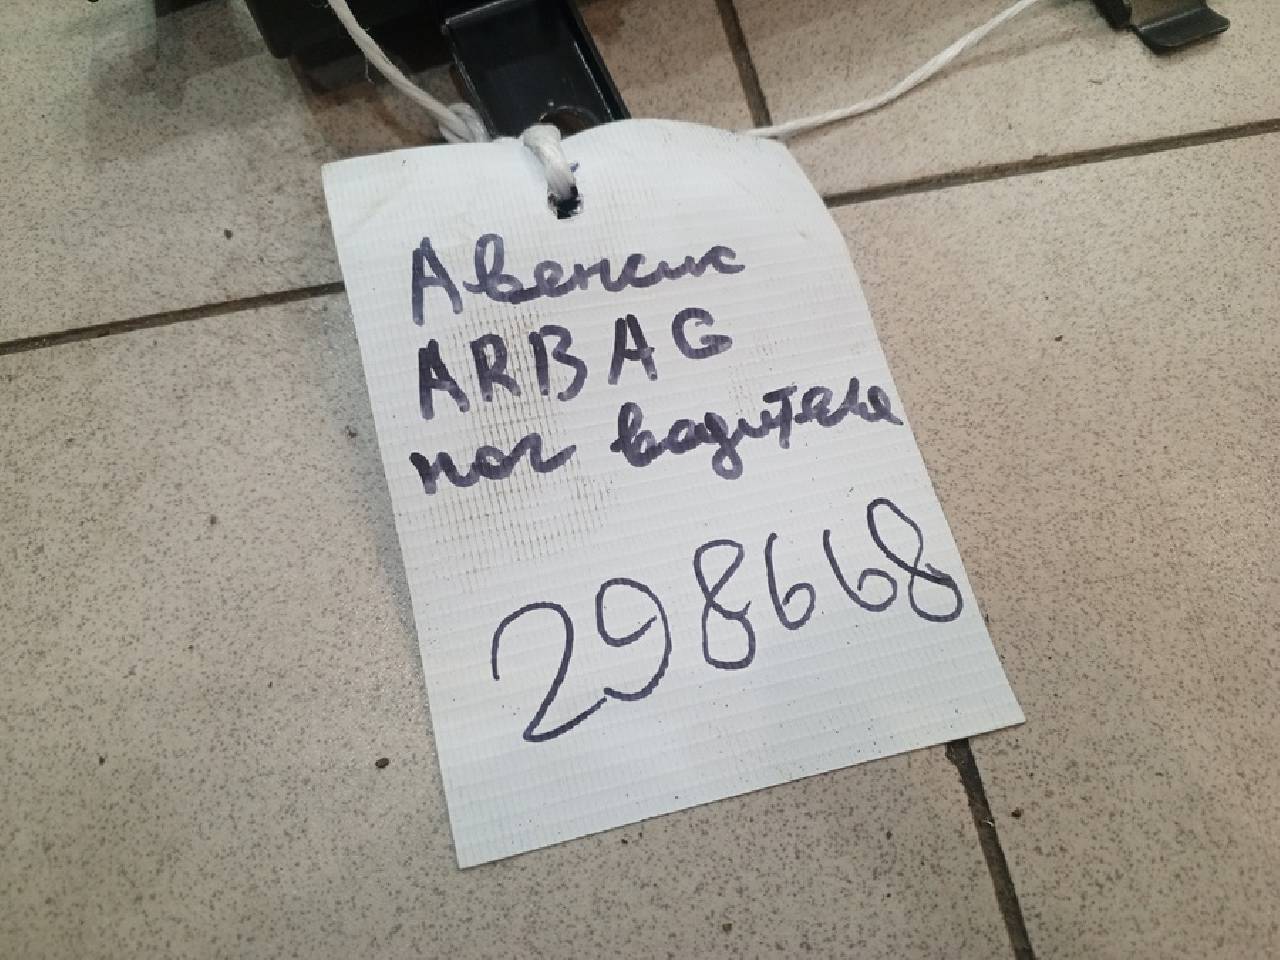 Авенсис
ARBAG
ног водителя
298668